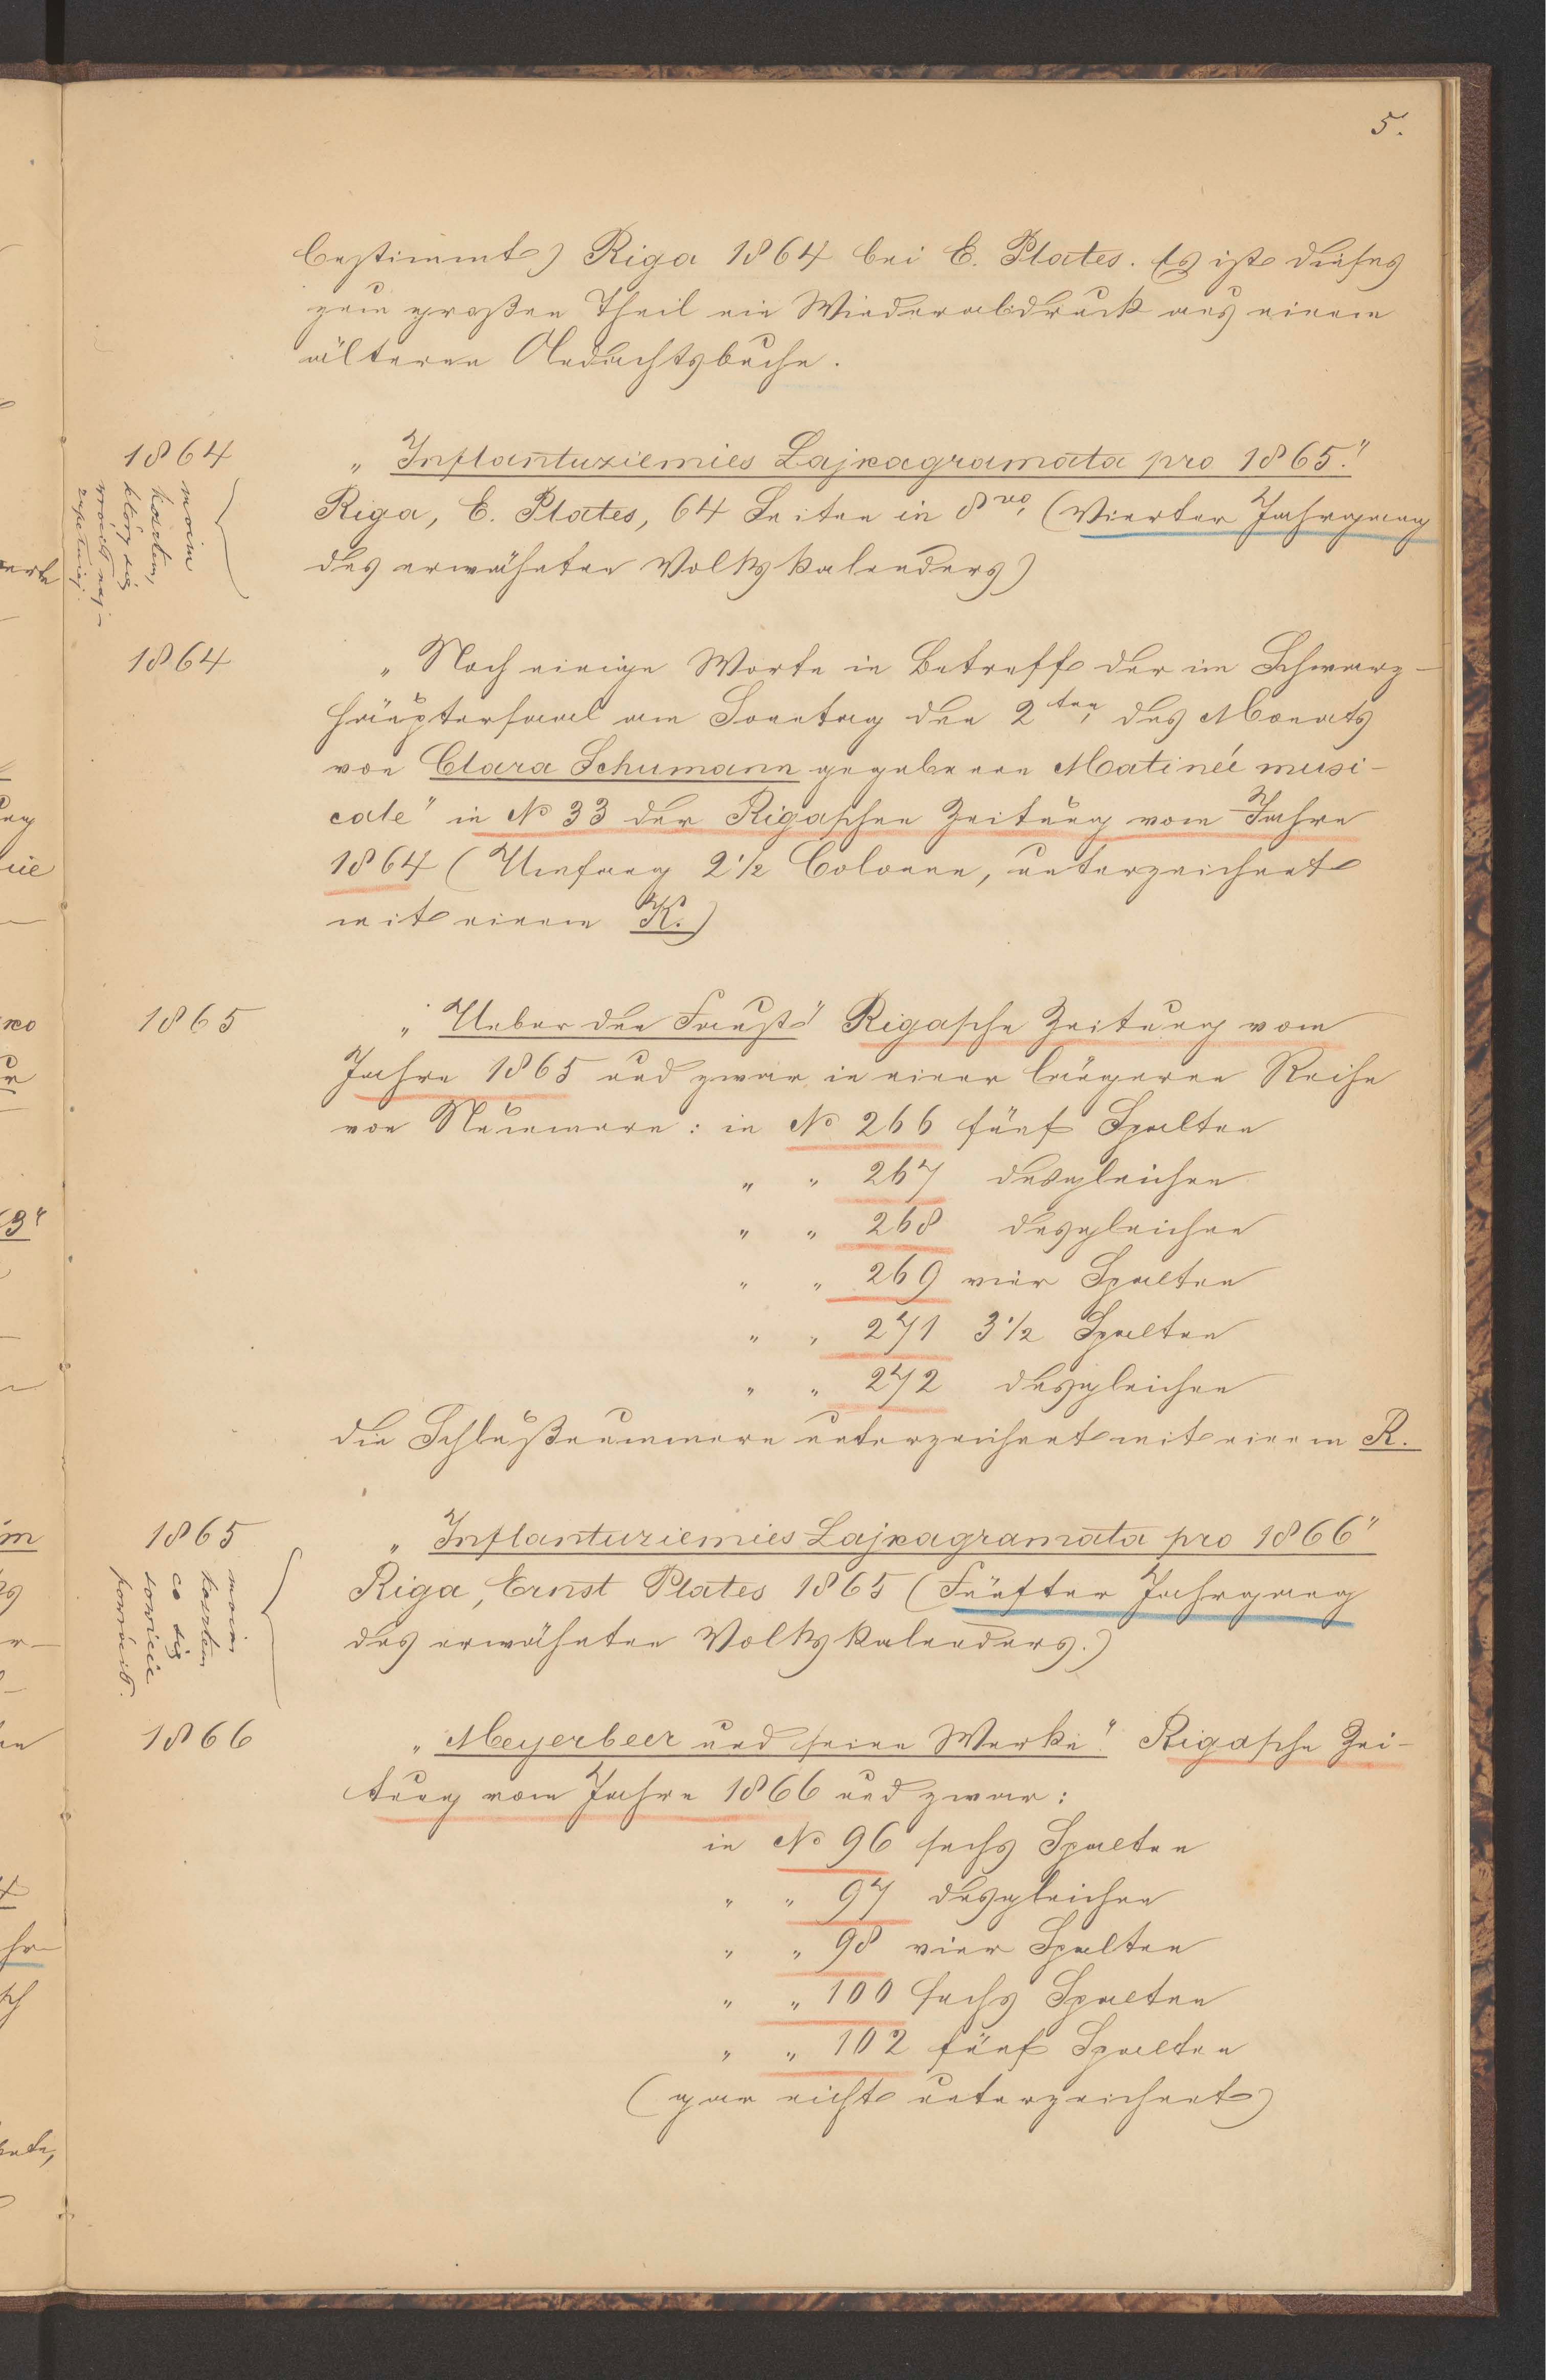 5.
bestimmt) Riga 1864 bei E. Plates. Es ist dieses
zum großen Theil ein Wiederabdruck aus einem
älteren Andachtsbuche.
1864
moim
kosztem,
który się
wrócił naj-
zupełniej.
„Inflantuziemies Lajkagramata pro 1865."
Riga, E. Plates, 64 Seiten in 8vo, (Vierter Jahrgang
des erwähnten Volkskalenders)
1864
„Noch einige Worte in Betreff der im Schwarz-
häuptersaal am Sonntag den 2ten, des Monats
von Clara Schumann gegebenen Matineé musi-
cale" in No 33 der Rigaschen Zeitung vom Jahre
1864 (Umfang 2 1/2 Colonne, unterzeichnet
mit einem K.)
1865
„Ueber den Faust" Rigasche Zeitung vom
Jahre 1865 und zwar in einer längeren Reihe
von Nummern: in No 266 fünf Spalten
„ „ 267 desgleichen
„ „ 268 desgleichen
„ „ 269 vier Spalten
„ „ 271 3 1/2 Spalten
„ „ 272 desgleichen
die Schlußnummern unterzeichnet mit einem R.
1865
moim
kosztem
co się
sowicie
„Inflantuziemies Lajkagramata pro 1866"
Riga, Ernst Plates 1865 (Fünfter Jahrgang
des erwähnten Volkskalenders.)
1866
„Meyerbeer und seine Werke". Rigasche Zei-
tung vom Jahre 1866 und zwar:
in No 96 sechs Spalten
„ „ 97 desgleichen
„ „ 98 vier Spalten
„ „ 100 sechs Spalten
„ „ 102 fünf Spalten
(gar nicht unterzeichnet)